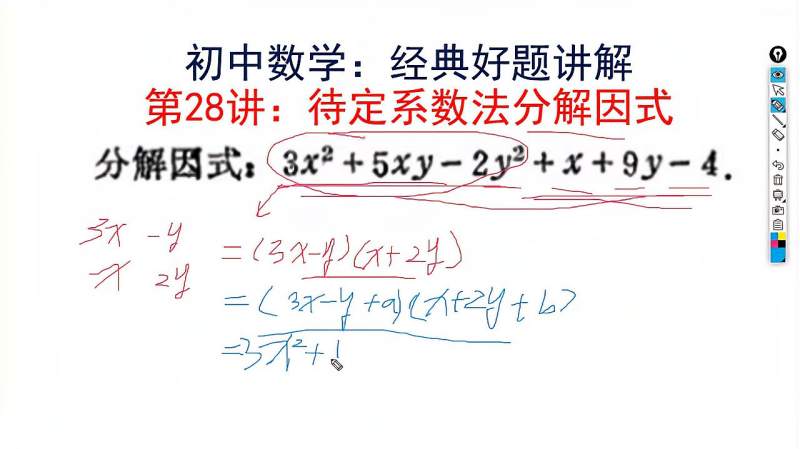 初中数学：经典好题讲解
第28讲：待定系数法分解因式
分解因式：3x²+5xy−2y²+x+9y−4.
3x -y
x 2y
=(3x-y)(x+2y)
=(3x-y+a)(x+2y+b)
=3x²+